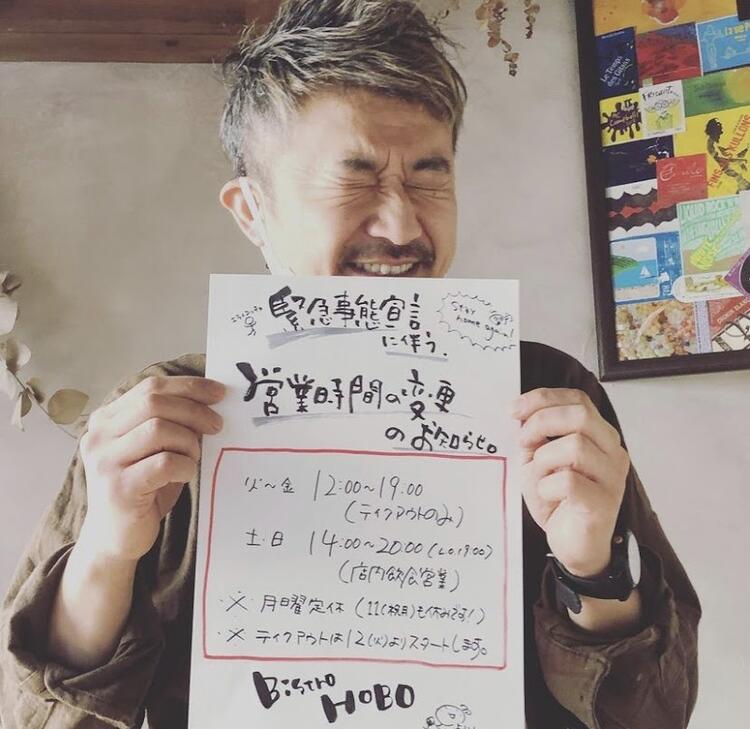 緊急事態宣言
に伴う、
Stay
home again!
営業時間の変更
のお知らせ。
火〜金 12:00〜19:00
(テイクアウトのみ)
土・日 14:00〜20:00(L.O.19:00)
(店内飲食営業)
※ 月曜定休 (11(祝月)も休みです!)
※ テイクアウトは12(火)よりスタートします。
Bistro
HOBO
Le Temps
des Gitans
FRICANT
KULLONS
LIQUID ROCK'N